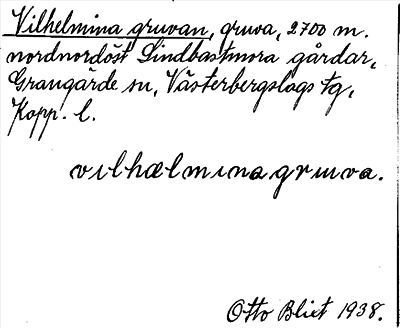 Vilhelmina gruvan, gruva, 2700 m.
nordnordöst Lindbastmora gårdar,
Grangärde sn, Västerbergslags tg,
Kopp. l.
vilhælmina gruva.
Otto Blixt 1938.